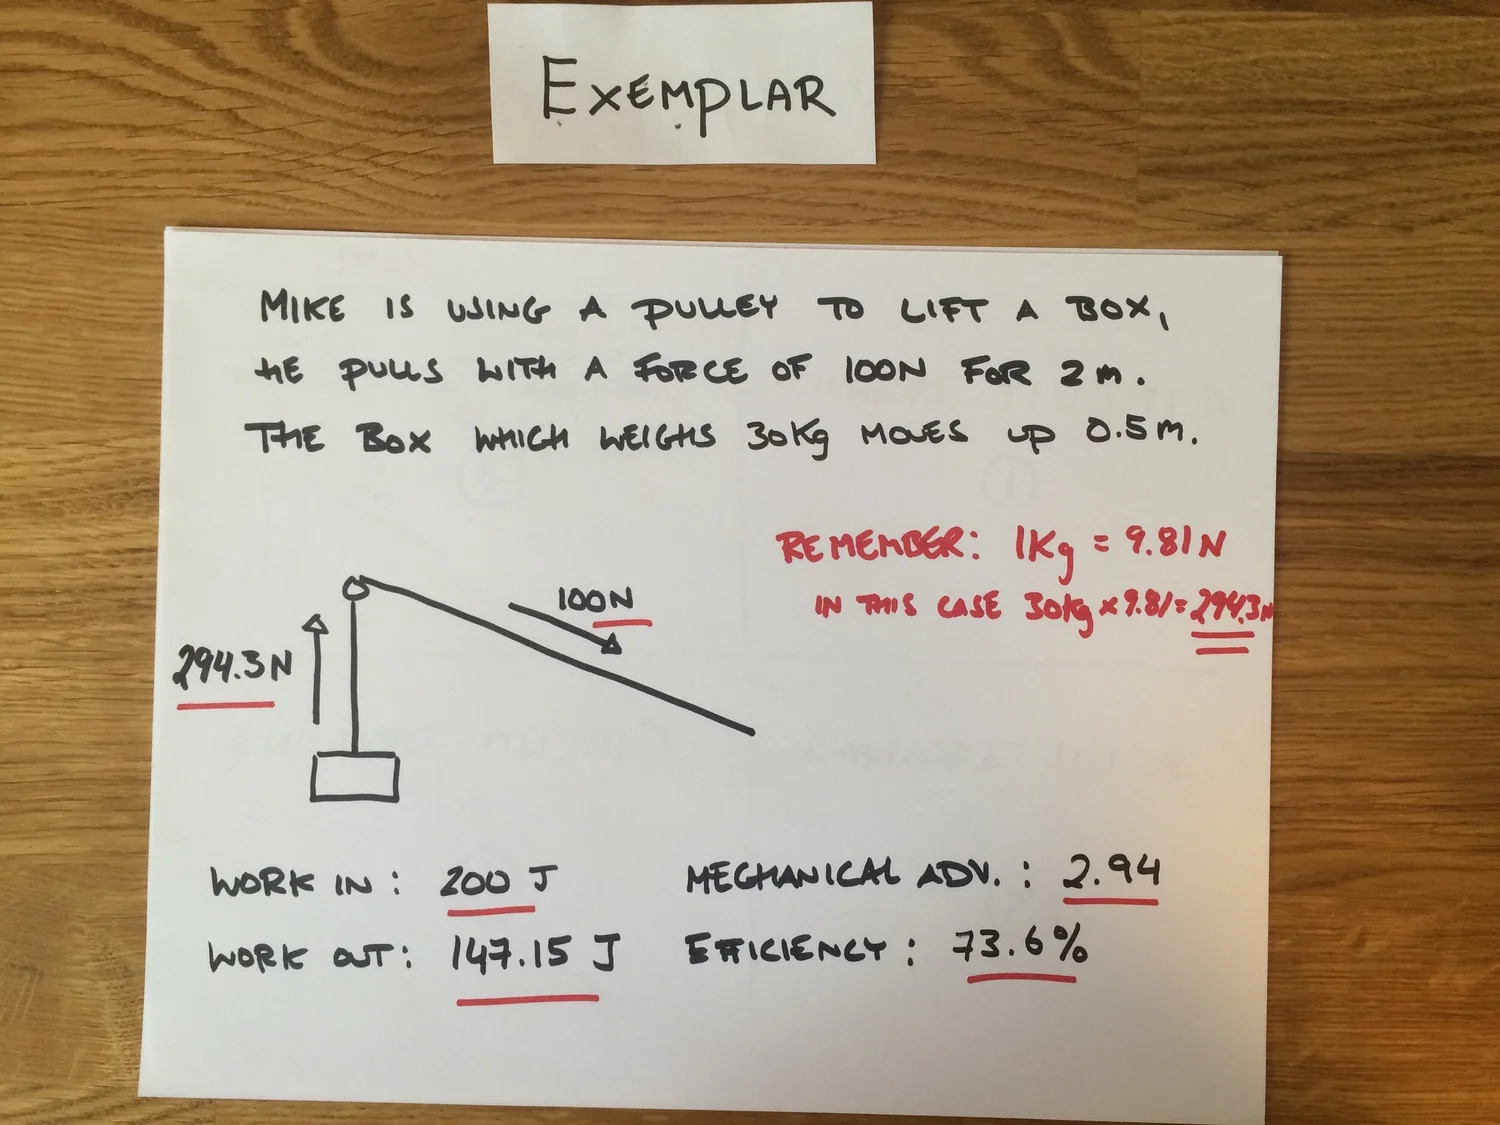 EXEMPLAR
MIKE IS USING A PULLEY TO LIFT A BOX,
HE PULLS WITH A FORCE OF 100N FOR 2m.
THE BOX WHICH WEIGHS 30Kg MOVES UP 0.5m.
REMEMBER: 1Kg = 9.81N
IN THIS CASE 30kg x 9.81 = 294.3N
100N
294.3N
WORK IN: 200 J
MECHANICAL ADV.: 2.94
WORK OUT: 147.15 J
EFFICIENCY: 73.6%